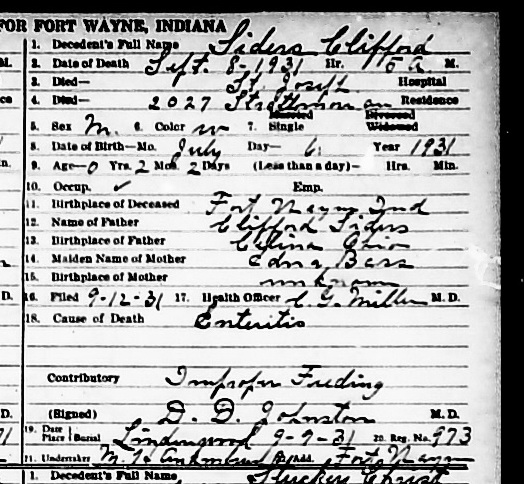 FOR FORT WAYNE, INDIANA
1. Decedent's Full Name Siders Clifford
M. 2. Date of Death Sept. 8-1931 Hr. 5 A. M.
3. Died— St. Joseph Hospital
4. Died— 2027 Residence
Married Divorced
5. Sex M. 6. Color w 7. Single Widowed
8. Date of Birth—Mo. July Day— 6. Year 1931
9. Age—0 Yrs. 2 Mos. 2 Days (Less than a day)— Hrs. Min.
10. Occup. ✓ Emp.
11. Birthplace of Deceased Fort Wayne Ind
12. Name of Father Clifford Siders
13. Birthplace of Father Celina Ohio
14. Maiden Name of Mother Edna Bass
15. Birthplace of Mother unknown
D. 16. Filed 9-12-31 17. Health Officer C. G. Miller M. D.
18. Cause of Death Enteritis
Contributory Improper Feeding
D. (Signed) D. D. Johnston M. D.
19. Date Place Burial Lindenwood 9-9-31 20. Reg. No. 973
21. Undertaker Add. Fort Wayne
1. Decedent's Full Name, Stuckey Christ